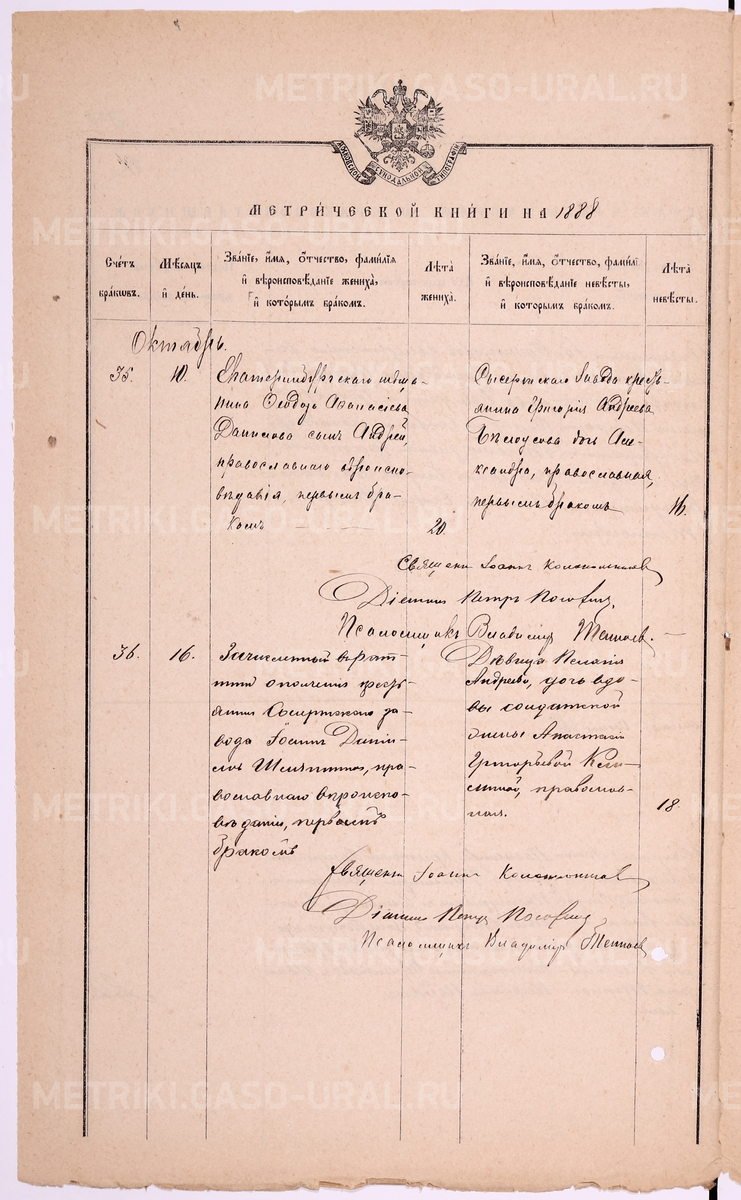 МЕТРИ́ЧЕСКОЙ КНИ́ГИ НА 1888
Сче́тъ бра́кωвъ.
Мѣ́сяцъ и҆ де́нь.
Зва́нїе, и҆́мя, ѻ҆́тчество, фамилїя и҆ вѣроисповѣ́данїе жениха̀, и҆ кото́рымъ бра́комъ.
Лѣ́та жениха̀.
Зва́нїе, и҆́мя, ѻ҆́тчество, фамилїя и҆ вѣроисповѣ́данїе невѣ́сты, и҆ кото́рымъ бра́комъ.
Лѣ́та невѣ́сты.
Октябрь.
35.
10.
Екатеринбургскаго мѣща-
нина Ѳеодора Аѳанасіева
Данилова сынъ Андрей,
православнаго вѣроиспо-
вѣданія, первымъ бра-
комъ
20.
Сысертскаго завода кресть-
янина Григорія Андреева
Бѣлоусова дочь Але-
ксандра, православная,
первымъ бракомъ
16.
Священникъ Іоаннъ
Діаконъ Петръ
Псаломщикъ Владимір
36.
16.
Зачисленный въ рат-
ники ополченія кресть-
янинъ Сысертскаго за-
вода Іоаннъ Дані-
ловъ православнаго вѣроиспо-
вѣданія, первымъ
бракомъ
Дѣвица Пелагія
Андреева, дочь вдо-
вы солдатской
жены Анастасіи
Григорьевой
православ-
ная.
18.
Священникъ Іоаннъ
Діаконъ Петръ
Псаломщикъ Владиміръ
METRIKI.GASO-URAL.RU